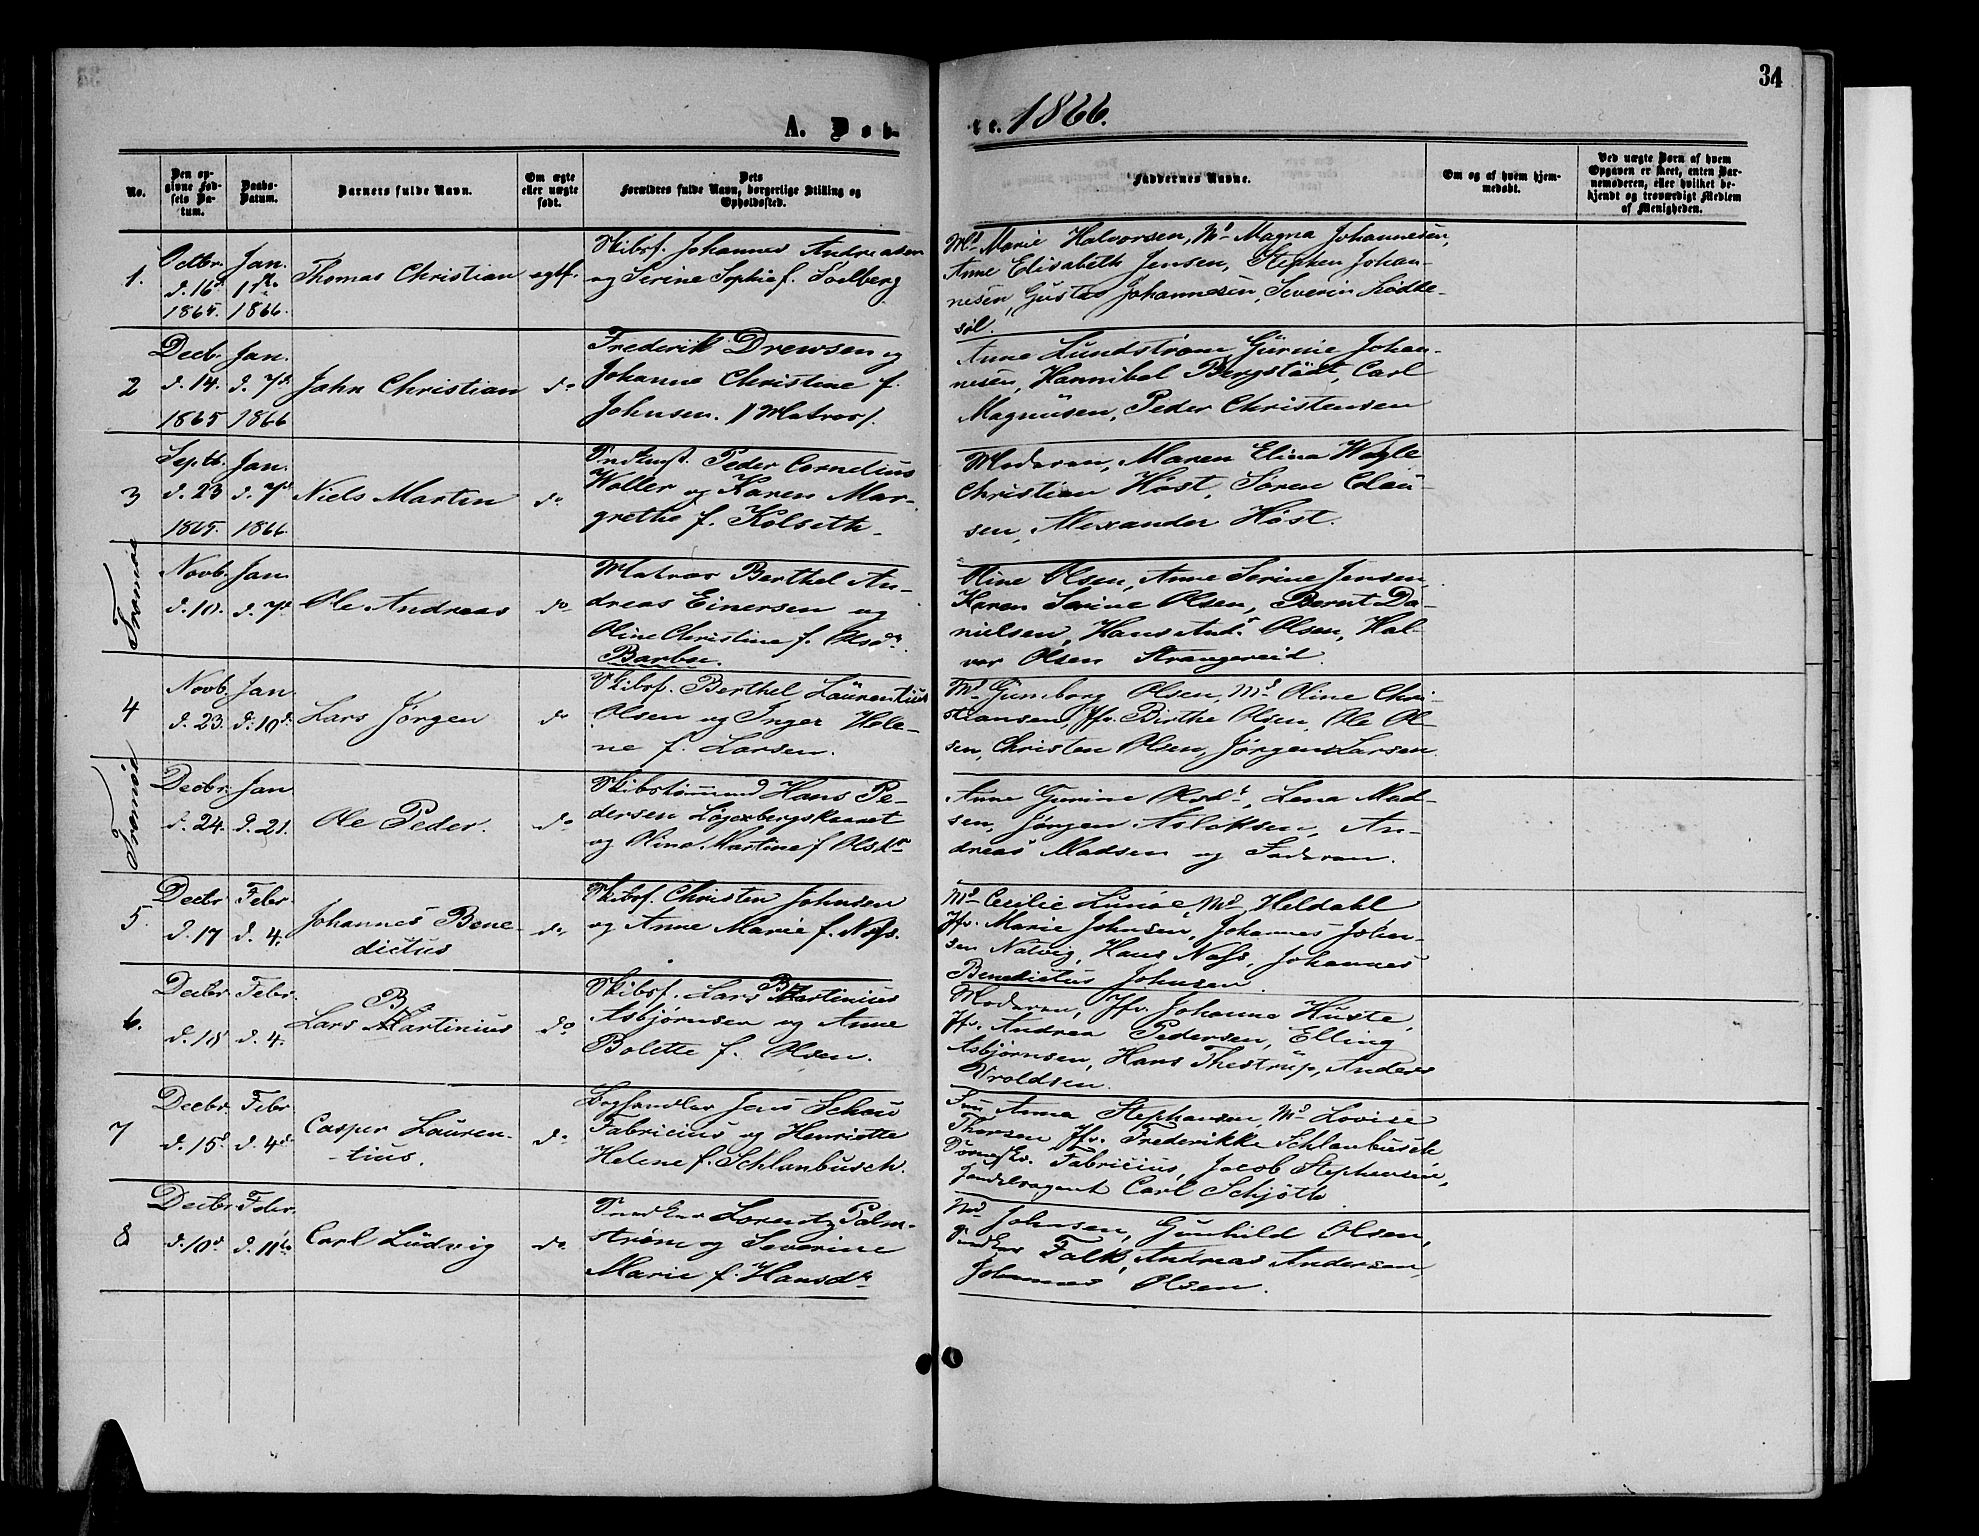 34
A. Døb-
te. 1866.
No.
Den op-
givne Fød-
sels Da-
tum.
Daabs-
Datum.
Barnets fulde Navn.
Om ægte
eller uægte
født.
Dets
Forældres fulde Navn, borgerlige Stilling og
Opholdssted.
Faddernes Navne.
Om og af hvem hjem-
medøbt.
Ved uægte Børn af hvem
Opgaven er skeet, enten Bar-
nemoderen, eller hvilket be-
kjendt og troværdigt Medlem
af Menigheden.
1.
Octbr.
d. 16d
1865.
Jan.
1ste
1866.
Thomas Christian
egtf.
Skibsf. Johannes Andreasen
og Serine Sophie f. Soelberg
Md. Marie Halvorsen, Md. Magna Johannesen,
Anne Elisabeth Jensen, Stephen Johan-
nesen, Gustav Johannesen, Severin Lødde-
søl.
2
Decb.
d. 14.
1865
Jan.
d. 7d.
1866
Jahn Christian
do
Frederik Drewsen og
Johanne Christine f.
Johnsen. // Matros/.
Anne Lundstrøm Gurine Johan-
nesen, Hannibal Bergstädt, Carl
Magnusen, Peder Christensen
3
Septb.
d. 23
1865.
Jan.
d. 7d
1866
Niels Martin
do.
Peder Cornelius
Woller og Karen Mar-
grethe f. Kolseth.
Moderen, Maren Elina Wagle
Christian Høst, Søren Clau-
sen, Alexander Høst.
Tromøe
Novb.
d. 10.
Jan.
d. 7d
Ole Andreas
do
Matros Berthel An-
dreas Einersen og
Oline Christine f. Olsdr.
Barbu.
Oline Olsen, Anne Serine Jensen,
Karen Serine Olsen, Bernt Da-
nielsen, Hans Ant. Olsen, Hal-
vor Olsen Strangereid.
4
Novb.
d. 23.
Jan
d. 10d.
Lars Jørgen
do
Skibsf. Berthel Laurentius
Olsen og Inger Hele-
ne f. Larsen.
Md. Gunborg Olsen, Md. Oline Chri-
stiansen, Jfr. Birthe Olsen, Ole Ol-
sen, Christen Olsen, Jørgen Larsen.
Tromøe
Decbr.
d. 24.
Jan
d. 21.
Ole Peder.
do
Skibstømmermd Hans Pe-
dersen
og Olina Martine f Olsdr
Anne Gurine Olsdr, Lena Mad-
sen, Jørgen Aslaksen, An-
dreas Madsen og Faderen.
5.
Decbr
d. 17
Febr
d. 4.
Johannes Bene-
dictus
do
Skibsf. Christen Johnsen
og Anne Marie f. Næss.
Md. Cecilie Lunøe Md. Heldahl
Jfr. Marie Johnsen, Johannes John-
sen Natvig, Hans Næss, Johannes
Benedictus Johnsen.
6.
Decbr
d. 18
Febr.
d. 4.
B
Lars Martinius
do
Skibsf. Lars Martinius
Asbjørnsen og Anne
Bolette f. Olsen.
Moderen, Jfr. Johanne Huste,
Jfr. Andrea Pedersen, Elling
Asbjørnsen, Hans Thestrup, Anders
Vroldsen.
7
Decbr.
d. 15d
Febr
d. 4d.
Casper Lauren-
-tius.
do
Boghandler Jens Schou
Fabricius og Henriette
Helene f. Schlanbusch.
Fru Anna Stephansen, Md. Lovise
Thorsen Jfr. Frederikke Schlanbusch
Fabricius, Jacob Stephansen,
Handelsagent Carl Schjøtt.
8
Decbr
d. 10d
Febr.
d. 11te
Carl Ludvig
do
Snedker Lorentz Palm-
strøm og Severine
Marie f. Hansdr
Md. Johnsen, Gunhild Olsen,
Snedker Falk, Andreas Andersen,
Johannes Olsen.